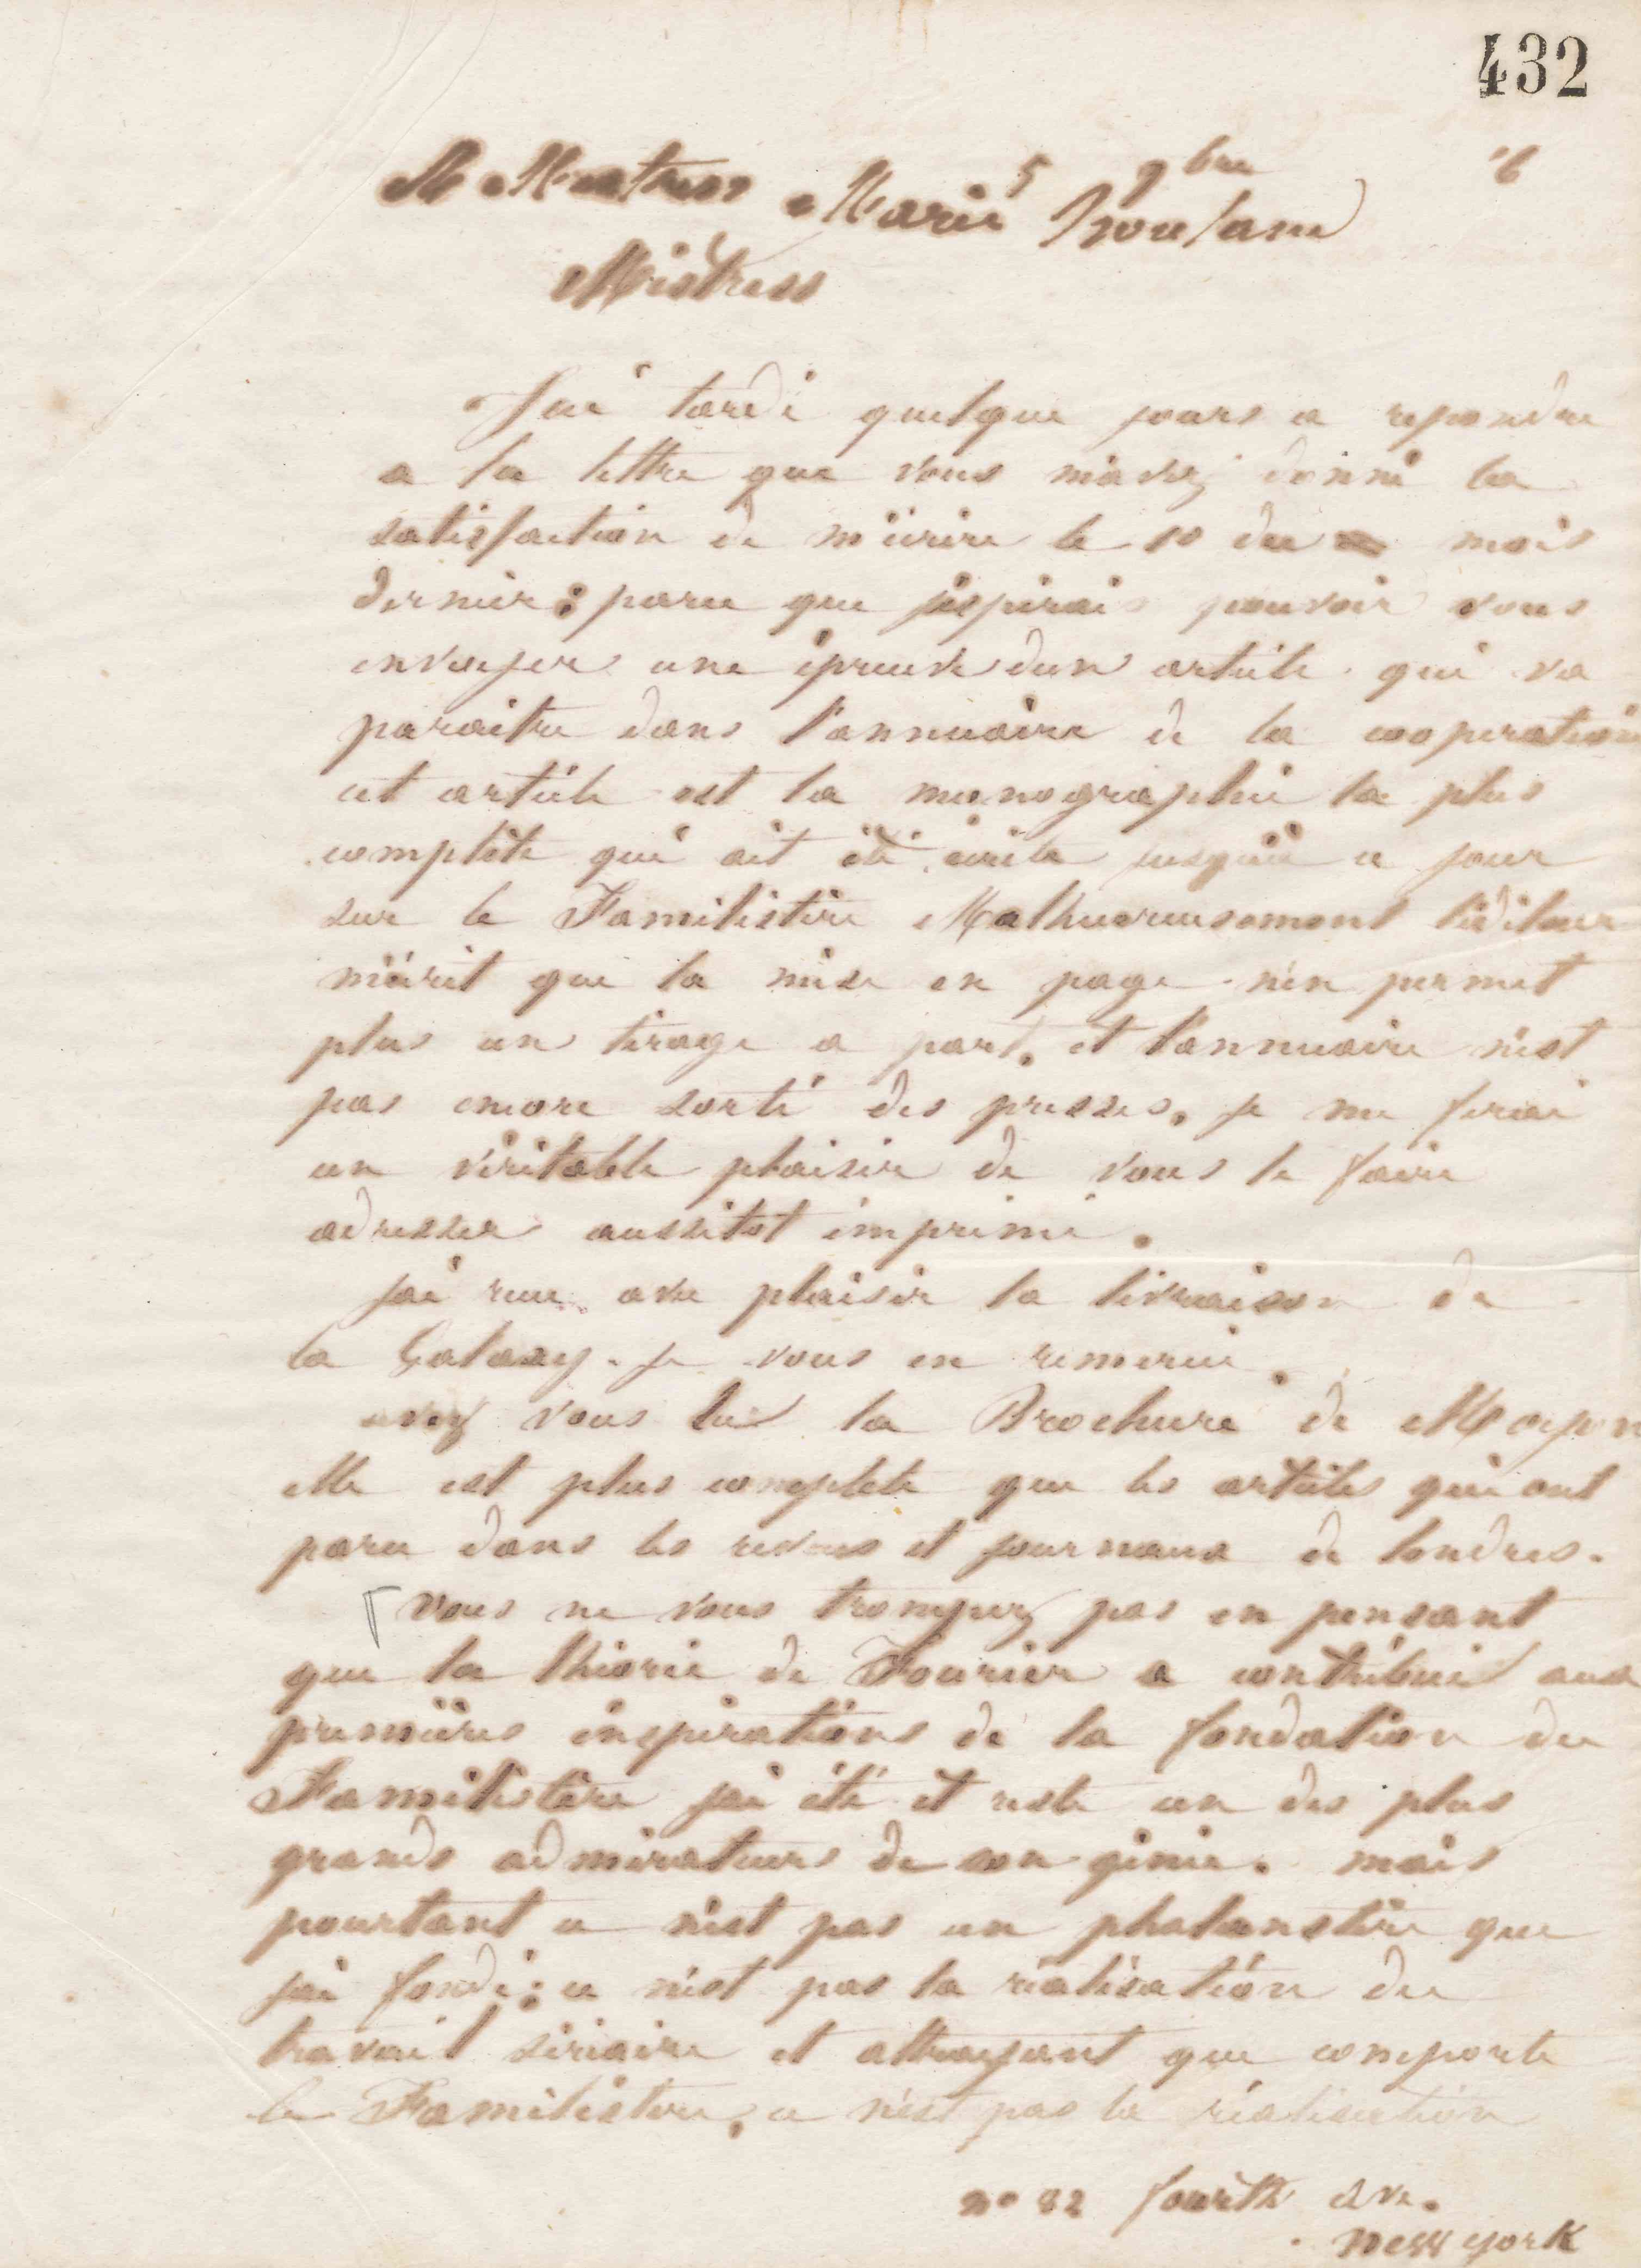 432
5 9bre 6
A Mistress Marie Howland
Mistress
J'ai tardé quelque jours a repondre
a la lettre que vous m'avez donné la
satisfaction de m'écrire le 10 du mois
dernier : parce que j'espérais pouvoir vous
envoyer une épreuve d'un article qui va
paraitre dans l'annuaire de la cooperation
cet article est la monographie la plus
complète qui ait été écrite jusqu'à ce jour
sur le Familistère Malheureusement l'éditeur
m'écrit que la mise en page n'en permet
plus un tirage a part. et l'annuaire n'est
pas encore sorti des presses. je me ferai
un véritable plaisir de vous le faire
adresser aussitot imprimé.
j'ai recu avec plaisir la livraison de
la Galaxy. je vous en remercie.
avez vous lu la Brochure de Moyon
elle est plus complete que les articles qui ont
paru dans les revues et journaux de londres.
vous ne vous trompez pas en pensant
que la théorie de Fourier a contribué aux
premières inspirations de la fondation du
Familistère j'ai été et reste un des plus
grands admirateurs de son génie. mais
pourtant ce n'est pas un phalanstère que
j'ai fondé : ce n'est pas la réalisation du
travail sériaire et attrayant que comporte
le Familistère, ce n'est pas la réalisation
no 32 fourth ave.
new york